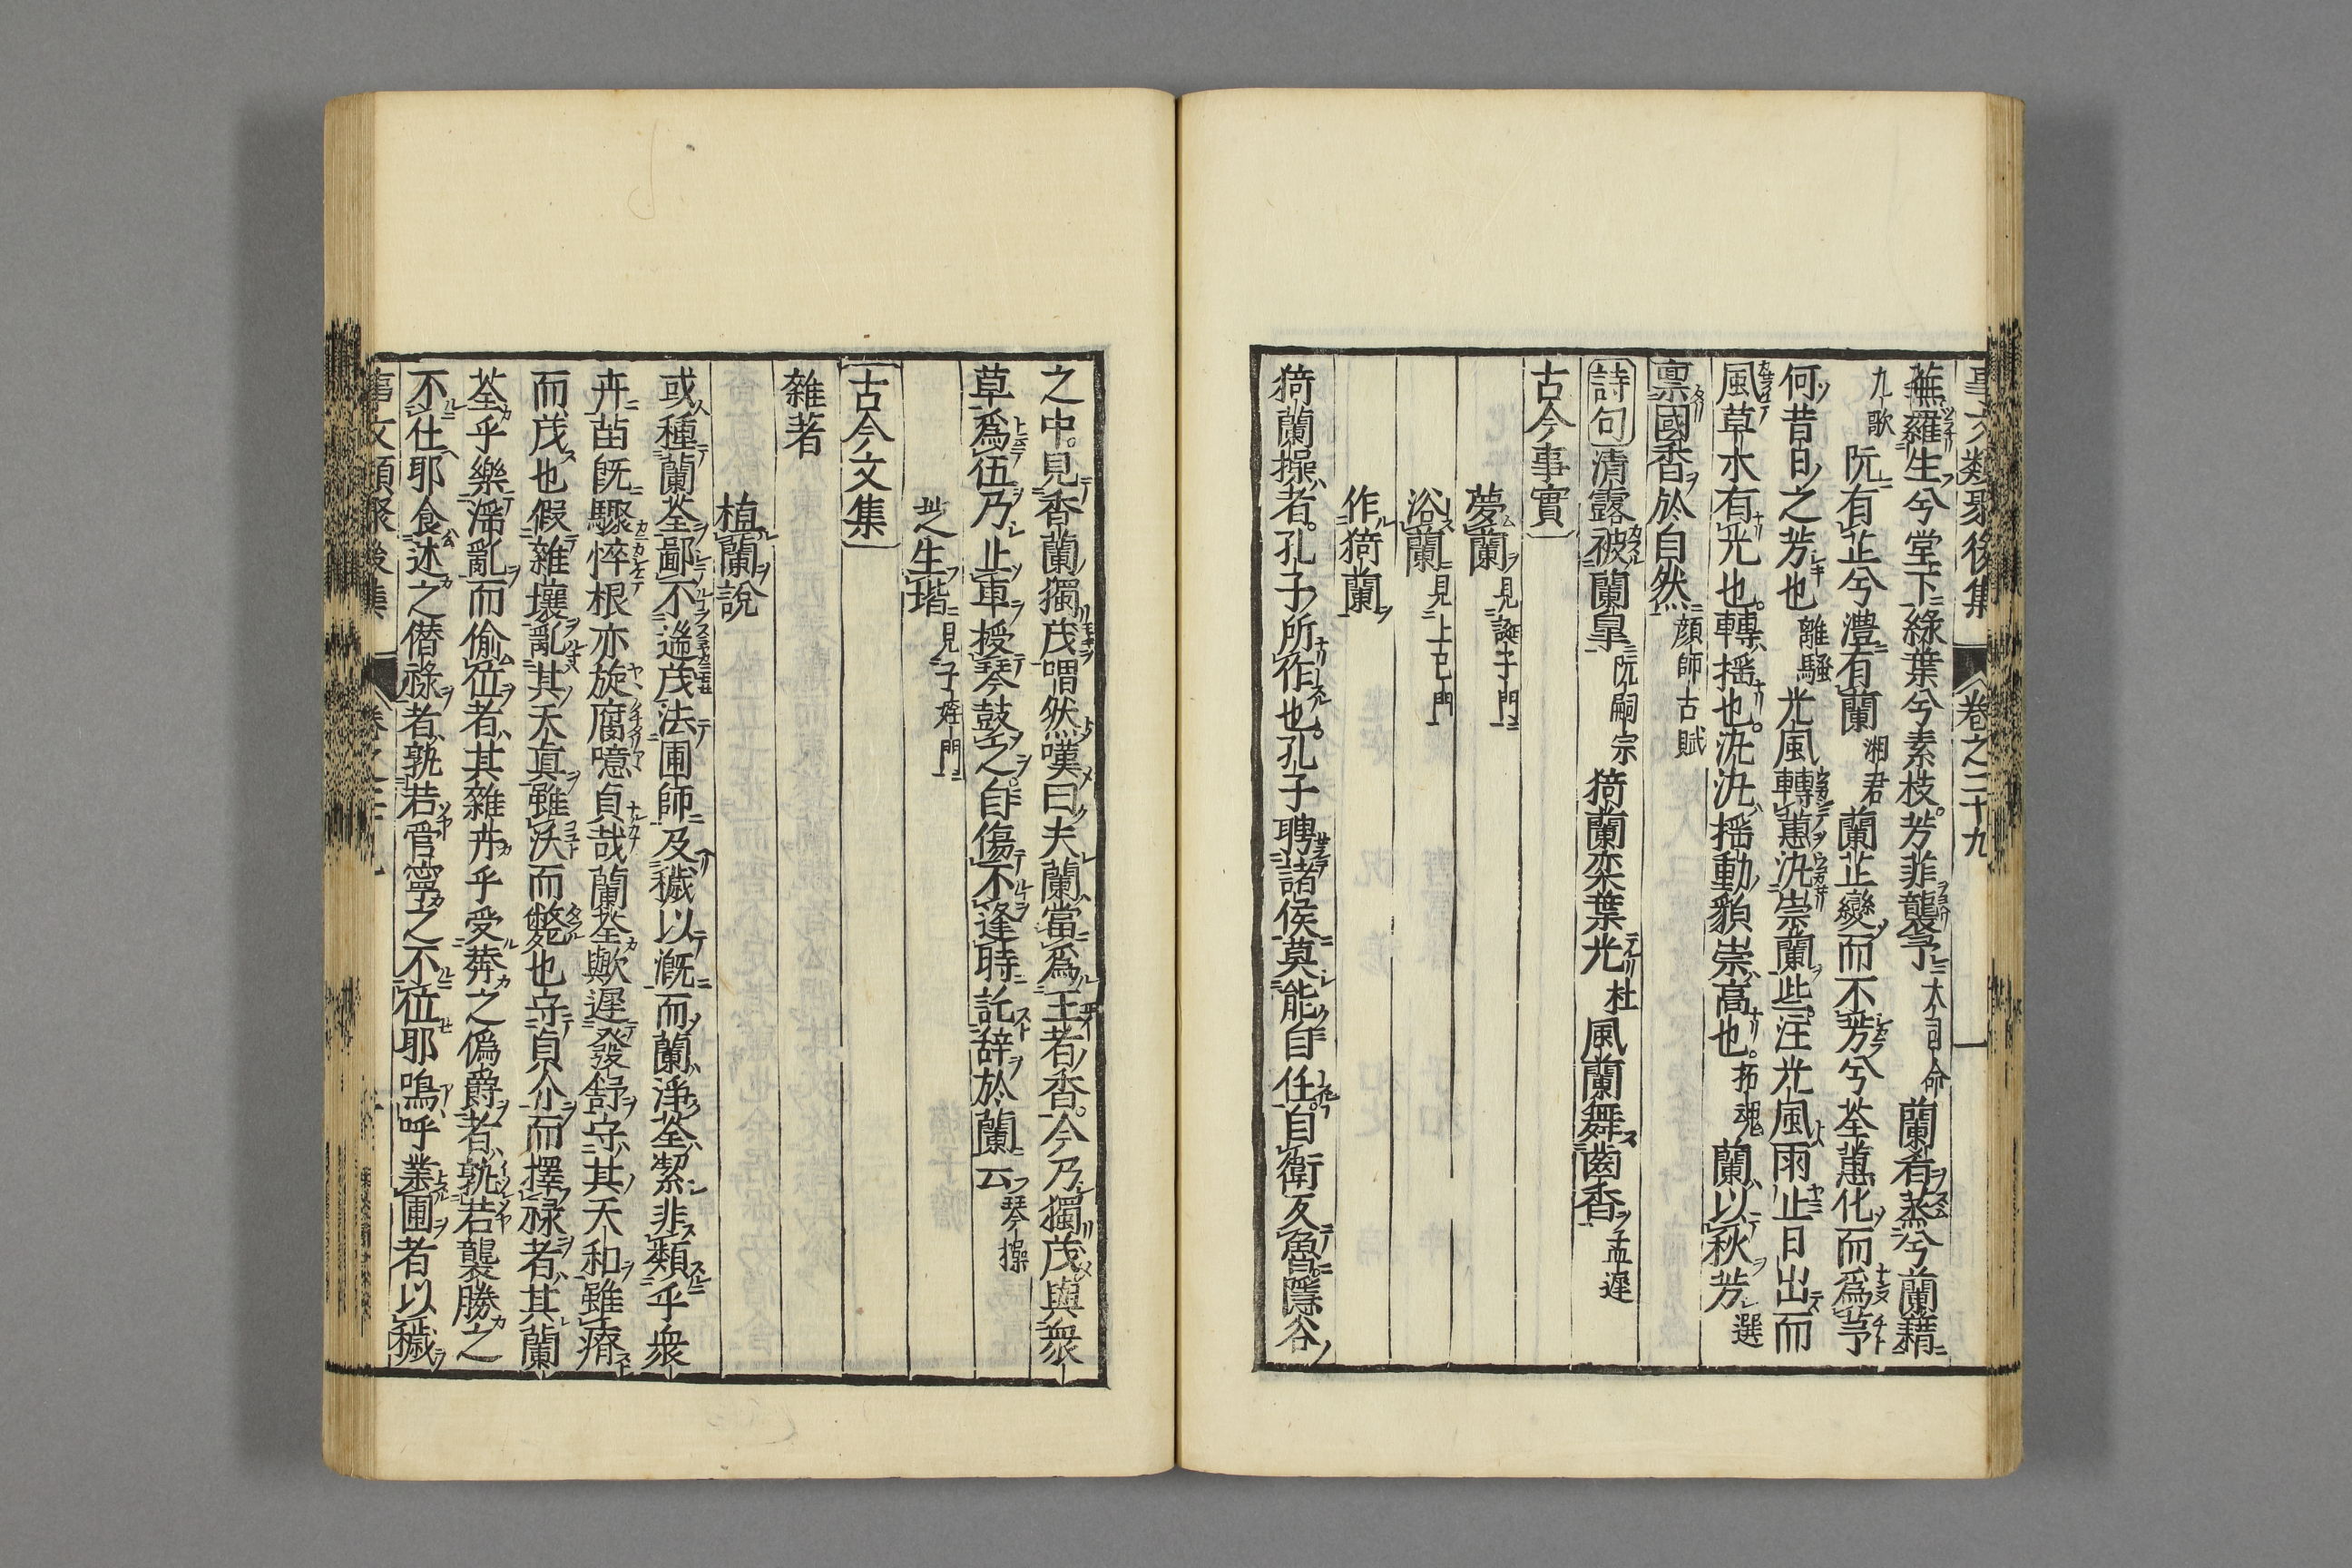 事文類聚後集 卷之二十九
蘼蕪羅生兮堂下綠葉兮素枝。芳菲襲予 大司命 蘭肴蒸兮蘭藉
九歌 沅有芷兮澧有蘭 湘君 蘭芷變而不芳兮荃蕙化而爲茅
何昔日之芳也 離騷 光風轉蕙汎崇蘭些。注光風雨止日出而
風草木有光也。轉搖也。汎汎搖動貌崇高也。招魂 蘭以秋芳 選
禀國香於自然 顔師古賦
詩句 清露被蘭皐 阮嗣宗 猗蘭奕葉光 杜 風蘭舞幽香 孟遲
古今事實
夢蘭 見誕子門
浴蘭 見上巳門
作猗蘭
猗蘭操者。孔子所作也。孔子聘諸侯莫能自任。自衛反魯。隱谷
之中。見香蘭獨茂喟然嘆曰夫蘭當爲王者香。今乃獨茂與衆
草爲伍乃止車授琴鼓之。自傷不逢時託辞於蘭云 琴操
謝之生堦 見子姪門
古今文集
雜著
植蘭說
或種蘭荃鄙不遄茂法圃師及穢以漑而蘭淨荃絜非類乎衆
卉苗旣驟悴根亦旋腐噫貞哉蘭荃歟遲發舒守其天和雖瘠
而茂也假雜壤亂其天真雖沃而斃也守貞介而擇祿者其蘭
荃乎樂淫亂而偷位者其雜卉乎受莽之僞爵者孰若龔勝之
不仕耶食述之僭祿者孰若管寧之不位耶嗚呼業圃者以穢
事文類聚後集 卷之二十九